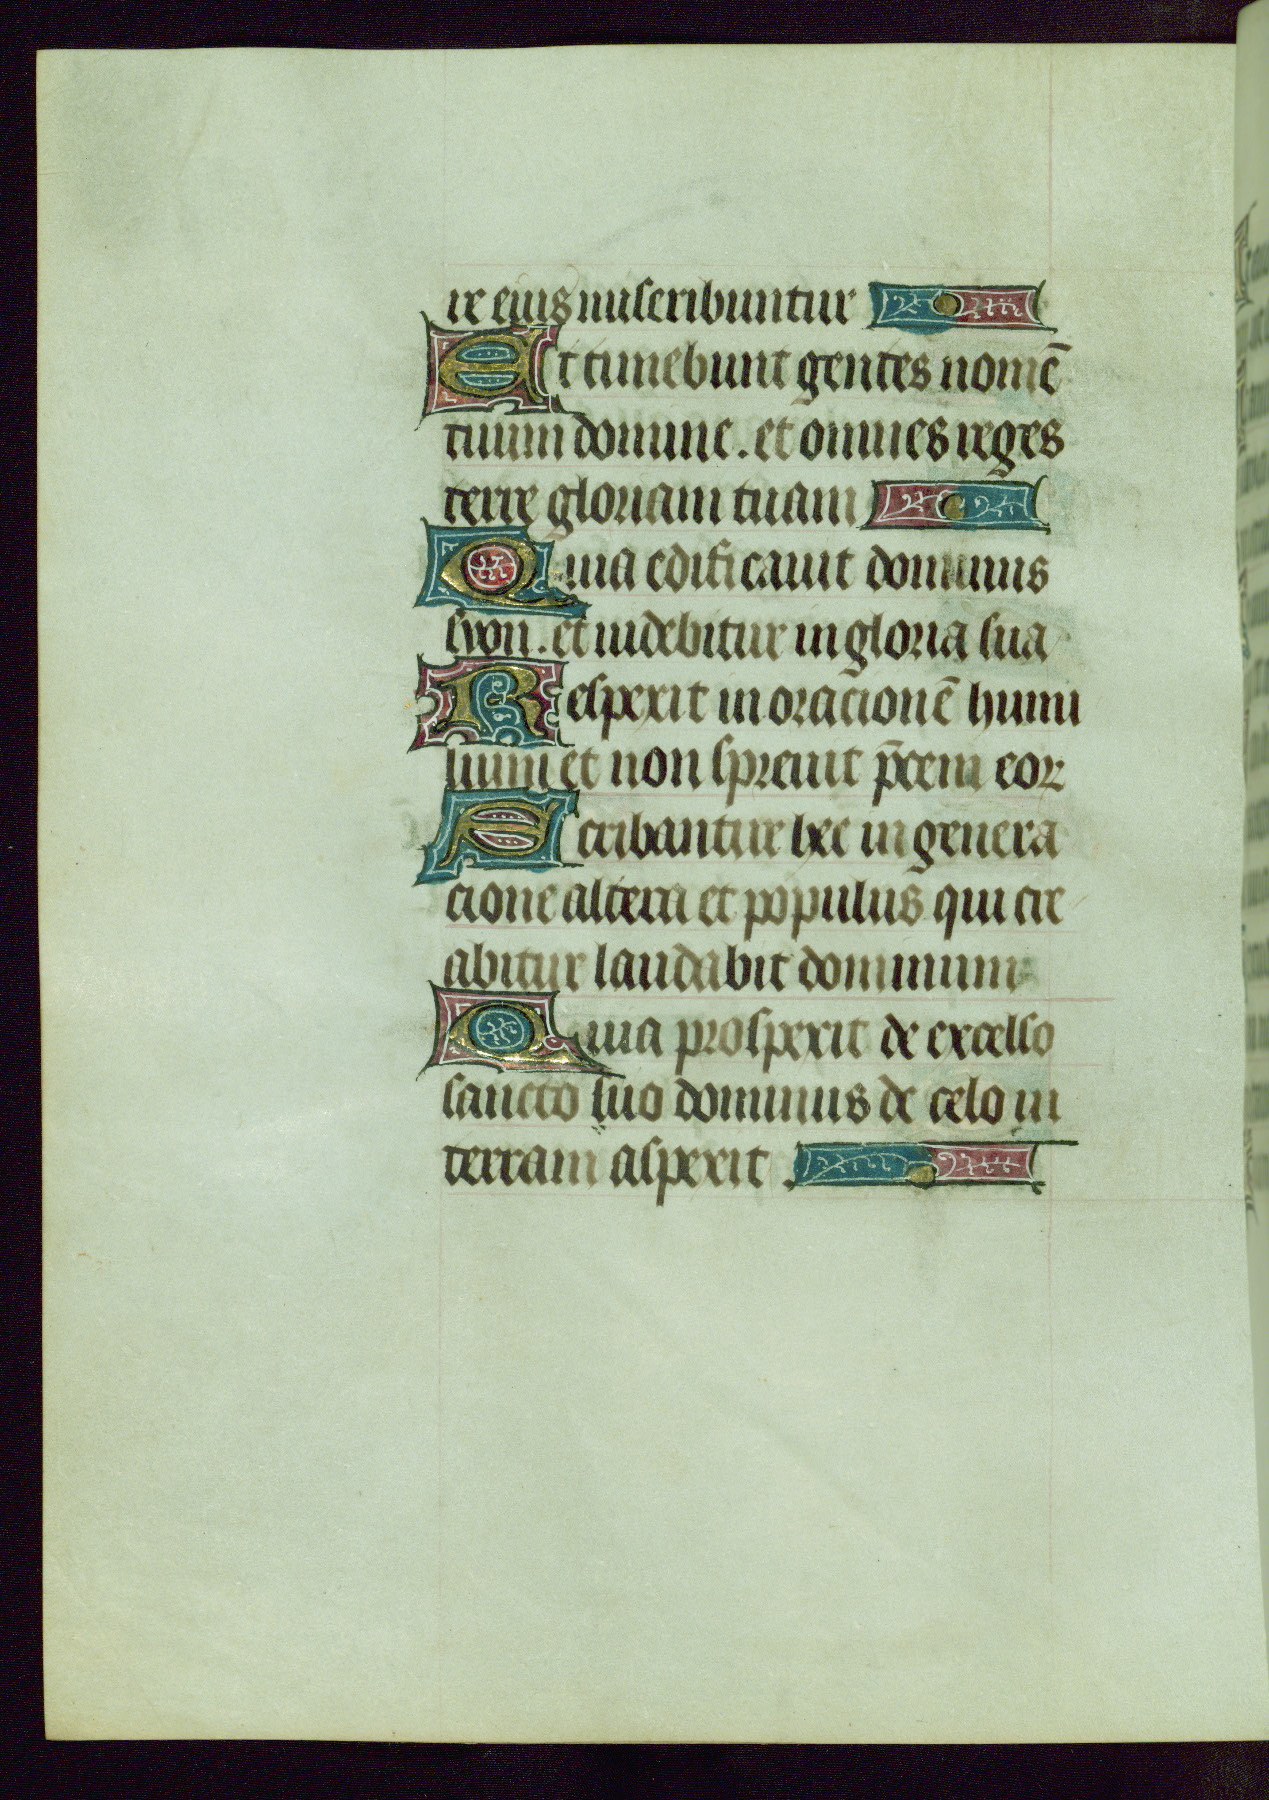 re eius miscribuntur
Et timebunt gentes nomē
tuum domine. et omnes reges
terre gloriam tuam
Quia edificauit dominus
syon. et uidebitur in gloria sua
Respexit in oracionē humi
lium et non spreuit p̄cem eoꝝ
Scribantur hec in genera
cione altera et populus qui cre
abitur laudabit dominum
Quia prospexit de excelso
sancto suo dominus de celo in
terram aspexit